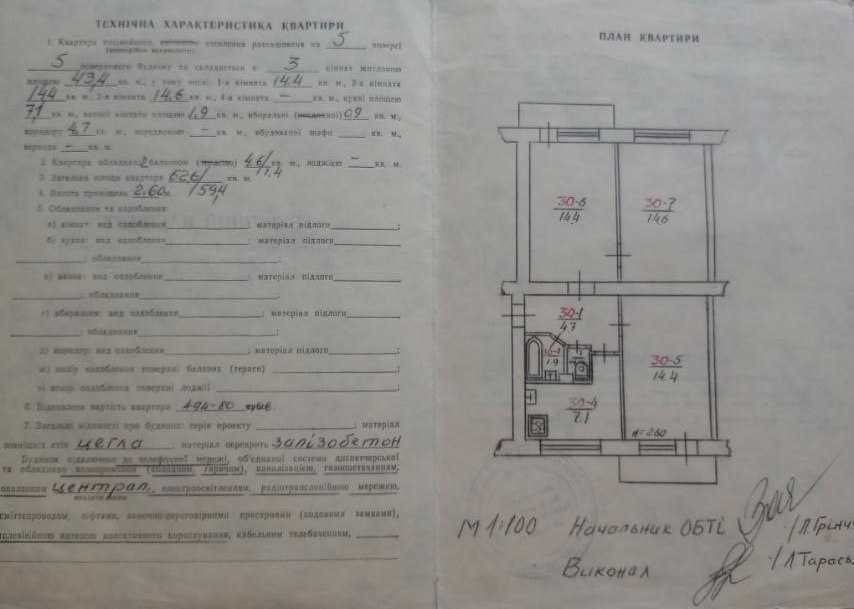 ТЕХНІЧНА ХАРАКТЕРИСТИКА КВАРТИРИ
1. Квартира розташована на 5 поверсі
5 поверхового будинку та складається з 3 кімнат житловою
площею 43,4 кв. м., у тому числі: 1-а кімната 14.4 кв. м., 2-а кімната
14.4 кв. м., 3-я кімната 14.6 кв. м., 4-а кімната — кв. м., кухні площею
7,1 кв. м., ванної кімнати площею 1,9 кв. м., вбиральні 0,9 кв. м.,
коридору 4,7 кв. м., — кв. м., вбудованої шафи кв. м.,
— кв. м.
2. Квартира обладнана 2 балконом (терасою) 4.6/1.4 кв. м., лоджією — кв. м.
3. Загальна площа квартири 62.6/59,4 кв. м.
4. Висота приміщень 2.60м
5. Оздоблення та обладнання:
а) кімнат: вид оздоблення ; матеріал підлоги ;
б) кухня: вид оздоблення ; матеріал підлоги
; обладнання ;
в) ванна: вид оздоблення ; матеріал підлоги
; обладнання ;
г) вбиральня: вид оздоблення ; матеріал підлоги
; обладнання ;
д) коридор: вид оздоблення ; матеріал підлоги ;
ж) вибір оздоблення поверхні балкона (тераси) ;
з) вибір оздоблення поверхні лоджії ;
6. Відновлена вартість квартири 494-80 крбів.
7. Загальні відомості про будинок: серія проекту ; матеріал
зовнішніх стін цегла ; матеріал перекриття залізобетон
Будинок підключено до телефонної мережі, об'єднаної системи диспетчерської
та обладнано водопроводом (холодним, гарячим), каналізацією, газопостачанням,
опаленням централ., електроосвітленням, радіотрансляційною мережею,
сміттєпроводом, ліфтами, замочно-переговорними пристроями (кодовими замками),
телевізійною антеною колективного користування, кабельним телебаченням,
ПЛАН КВАРТИРИ
30-6
14.4
30-7
14.6
30-1
4.7
1.9
30-5
14.4
30-4
7.1
h=2.60
М 1:100 Начальник ОБТІ
Виконав